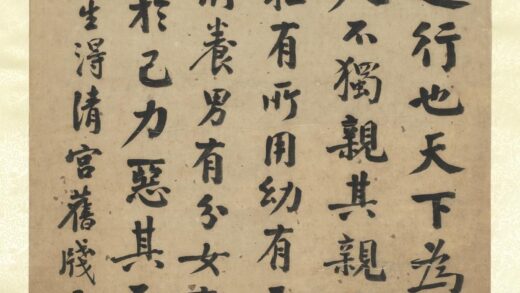 行也天下為
不獨親其親
有所用幼有
養男有分女
於己力惡其
生得清宮舊牋